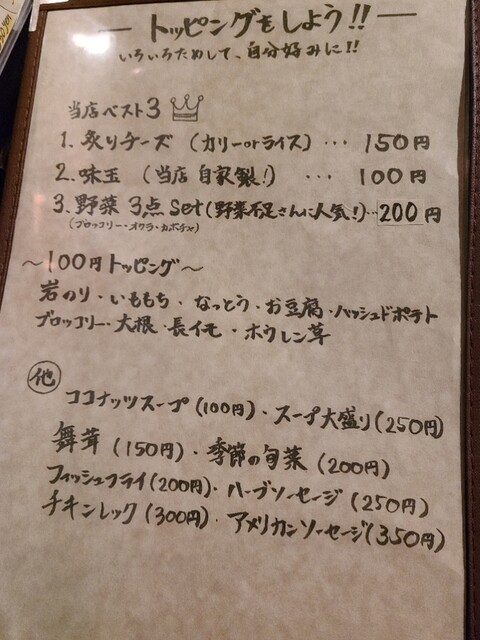 トッピングをしよう!!
いろいろためして、自分好みに!!
当店ベスト3
1. 炙りチーズ (カリーorライス) ・・・ 150円
2. 味玉 (当店 自家製!) ・・・ 100円
3. 野菜 3点 Set (野菜不足さんに人気!)・・200円
(ブロッコリー・オクラ・カボチャ)
〜100円トッピング〜
岩のり・いももち・なっとう・お豆腐・ハッシュドポテト
ブロッコリー・大根・長イモ・ホウレン草
他
ココナッツスープ (100円)・スープ大盛り(250円)
舞茸 (150円)・季節の旬菜 (200円)
フィッシュフライ(200円)・ハーブソーセージ (250円)
チキンレッグ (300円)・アメリカンソーセージ(350円)